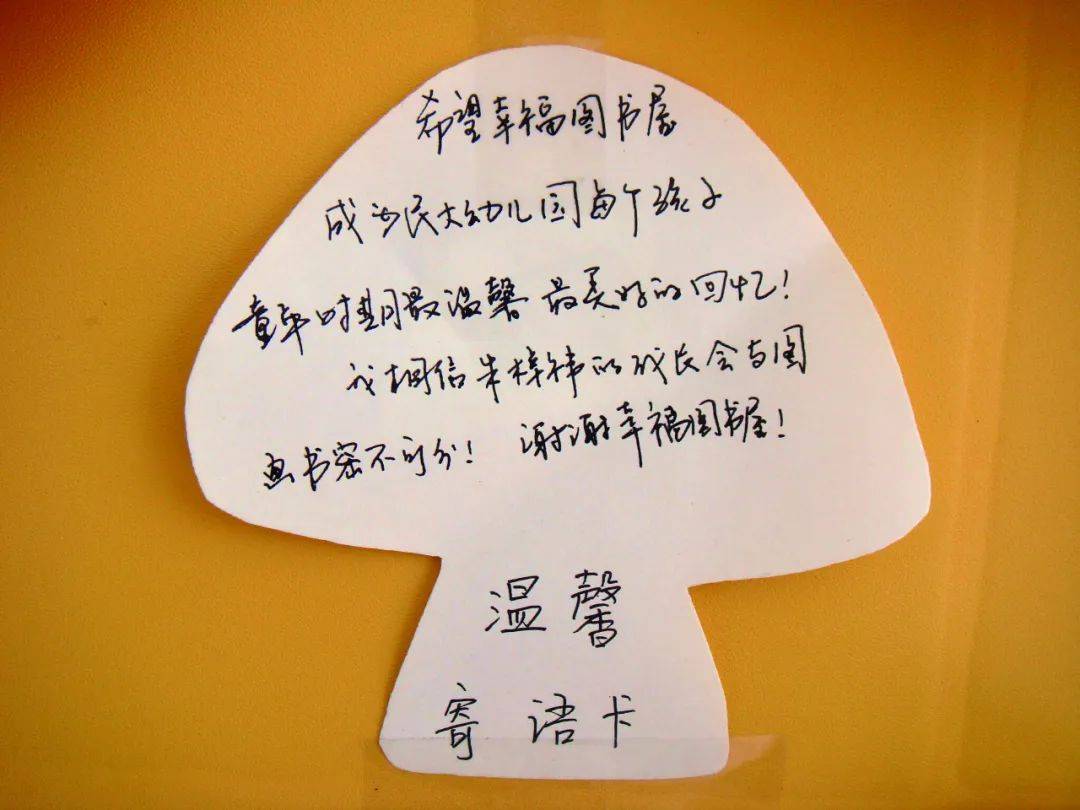 希望幸福图书屋
成为民大幼儿园每个孩子
童年时期最温馨最美好的回忆!
我相信朱梓祎的成长会与图
画书密不可分! 谢谢幸福图书屋!
温馨
寄语卡